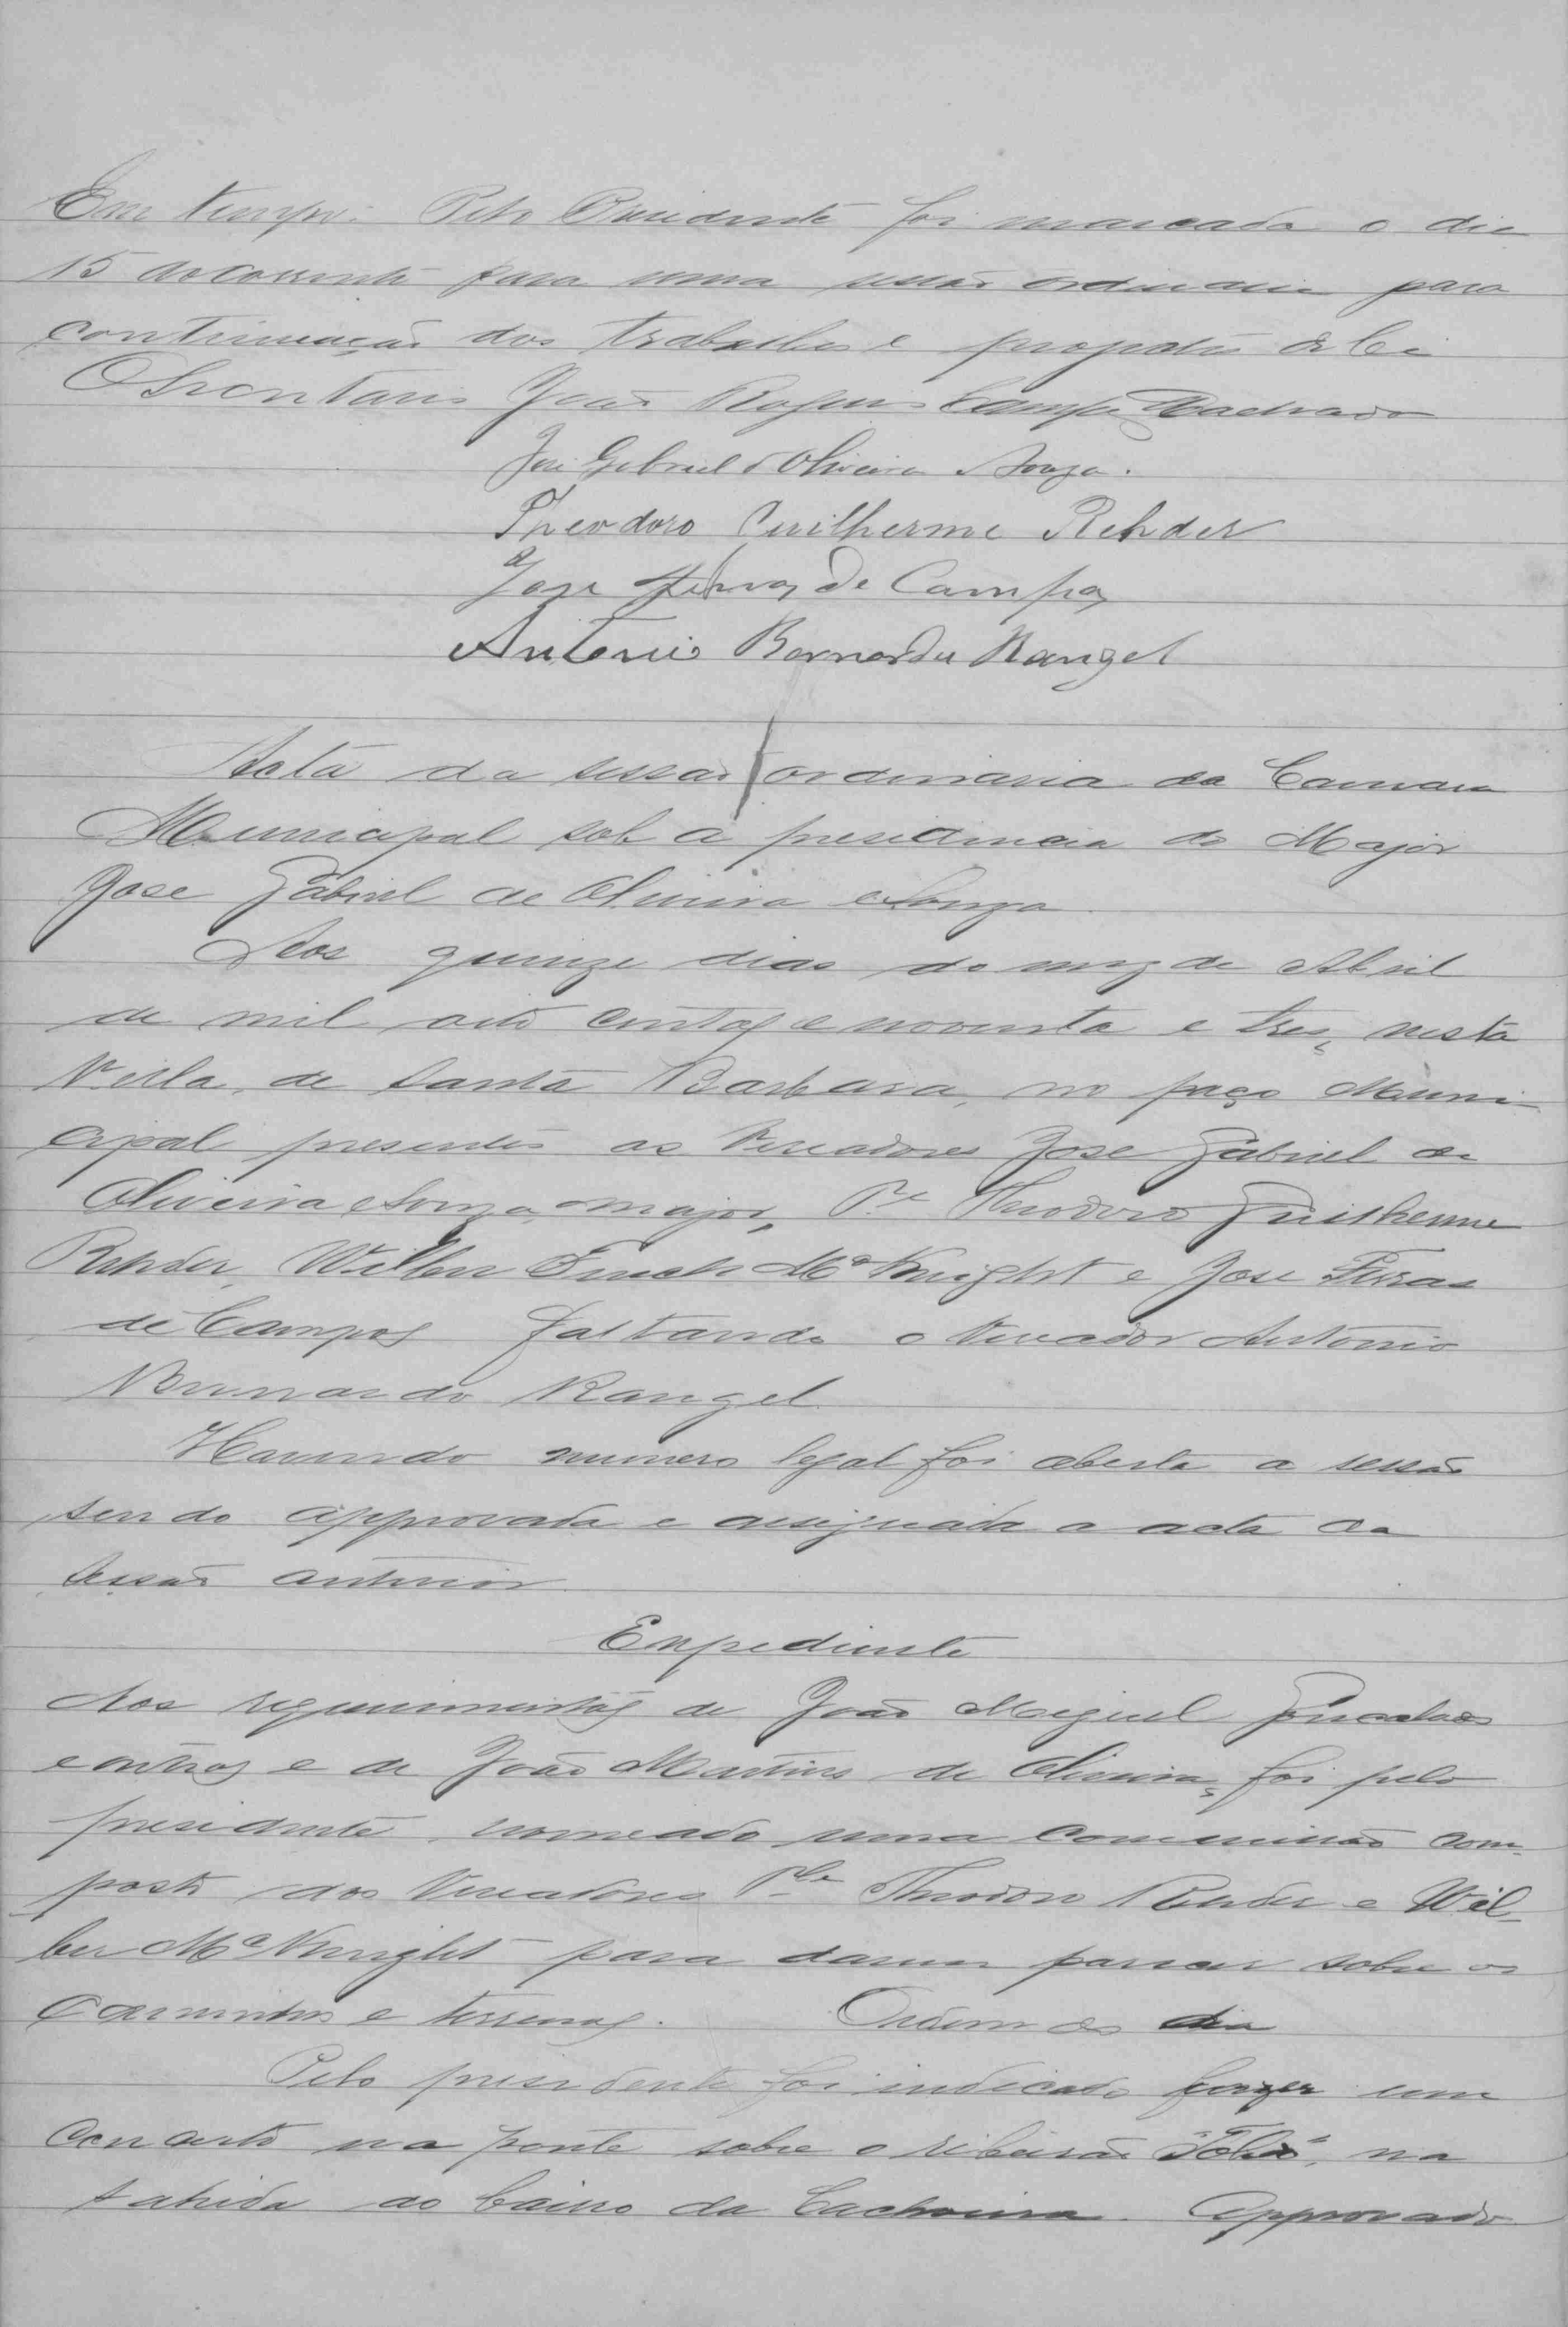 Em tempo: Pelo Presidente foi marcada o dia
15 do corrente para uma sessão ordinaria para
continuação dos trabalhos e propostas de lei
O Secretario João Campos Machado
José Gabriel d'Oliveira e Souza.
Theodoro Guilherme Rehder
José Ferraz de Campos
Antonio Bernardo Rangel
Acta da sessão ordinaria da Camara
Municipal sob a presidencia do Major
José Gabriel de Oliveira e Souza
Aos quinze dias do mez de Abril
de mil oito centos e noventa e tres, nesta
Villa de Santa Barbara, no paço Muni-
cipal presentes os Vereadores José Gabriel de
Oliveira e Souza major, Pe Theodoro Guilherme
Rehder, Wilber Mc Knight e José Ferraz
de Campos faltando o Vereador Antonio
Bernardo Rangel
Havendo numero legal foi aberta a sessão
sendo approvada e assignada a acta da
sessão anterior.
Expediente
Aos requerimentos de João Miguel
e outros e de João Martins de Oliveira, foi pelo
presidente nomeado uma commissão com-
posta dos Vereadores Theodoro Rehder e Wil-
ber Mc Knight para darem parecer sobre os
caminhos e terrenos. Ordem do dia
Pelo presidente foi indicado fazer um
concerto na ponte sobre o ribeirão "", na
sahida ao bairro da Cachoeira. Approvado